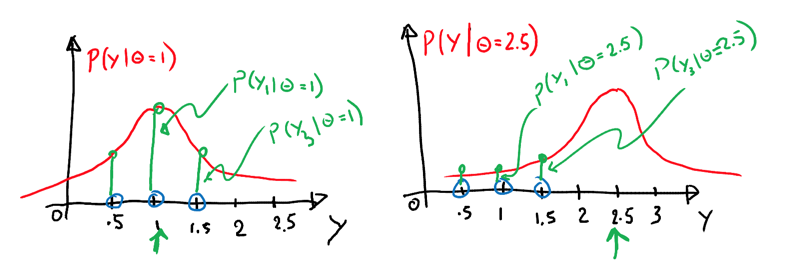 P(Y|θ=1)
P(Y₁|θ=1)
P(Y₃|θ=1)
0 .5 1 1.5 2 2.5 Y
P(Y|θ=2.5)
P(Y₁|θ=2.5)
P(Y₃|θ=2.5)
0 .5 1 1.5 2 2.5 3 Y